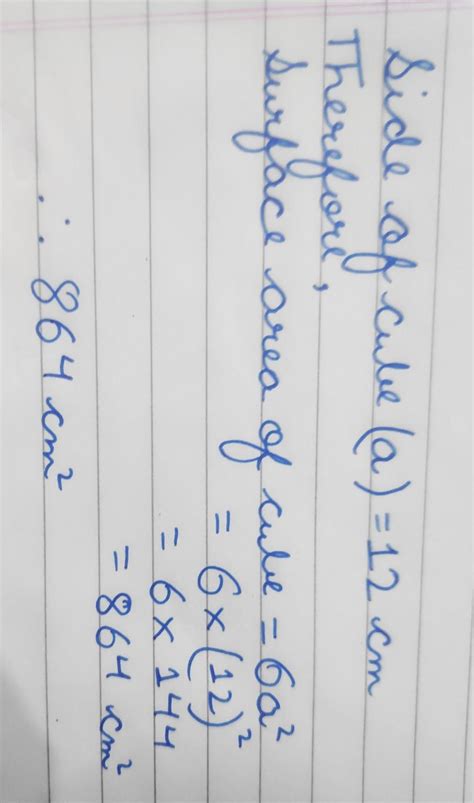 Side of cube (a) = 12 cm
Therefore,
Surface area of cube = 6a²
= 6 × (12)²
= 6 × 144
= 864 cm²
∴ 864 cm²